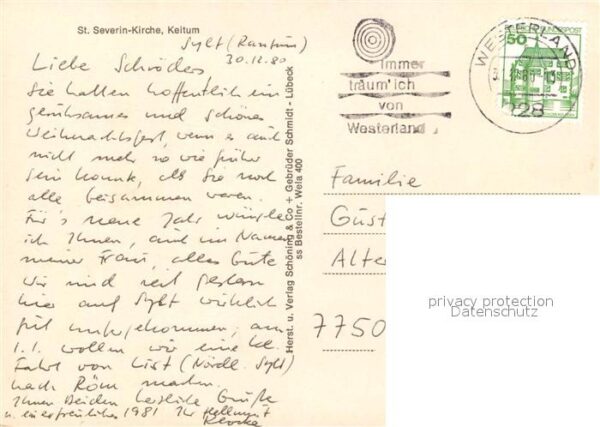 St. Severin-Kirche, Keitum
Sylt (Rantum)
30.12.80
Liebe Schröders
Sie hatten hoffentlich ein
geruhsames und schönes
Weihnachtsfest, wenn es auch
nicht mehr so wie früher
sein konnte, als Sie noch
alle beisammen waren.
Für's neue Jahr wünsche
ich Ihnen, auch im Namen
meiner Frau, alles Gute
Wir sind seit gestern
hier auf Sylt wirklich
gut untergekommen, am
1.1. wollen wir eine kl.
Fahrt von List (Nördl. Sylt)
nach Röm machen.
Ihnen Beiden herzliche Grüße
u. ein erfreuliches 1981 Ihr Hellmut
Herst. u. Verlag Schöning & Co + Gebrüder Schmidt - Lübeck
ss Bestellnr. Wela 400
Immer
träum' ich
von
Westerland
WESTERLAND
228
50
BUNDESPOST
Familie
Gust
Alter
7750
privacy protection
Datenschutz